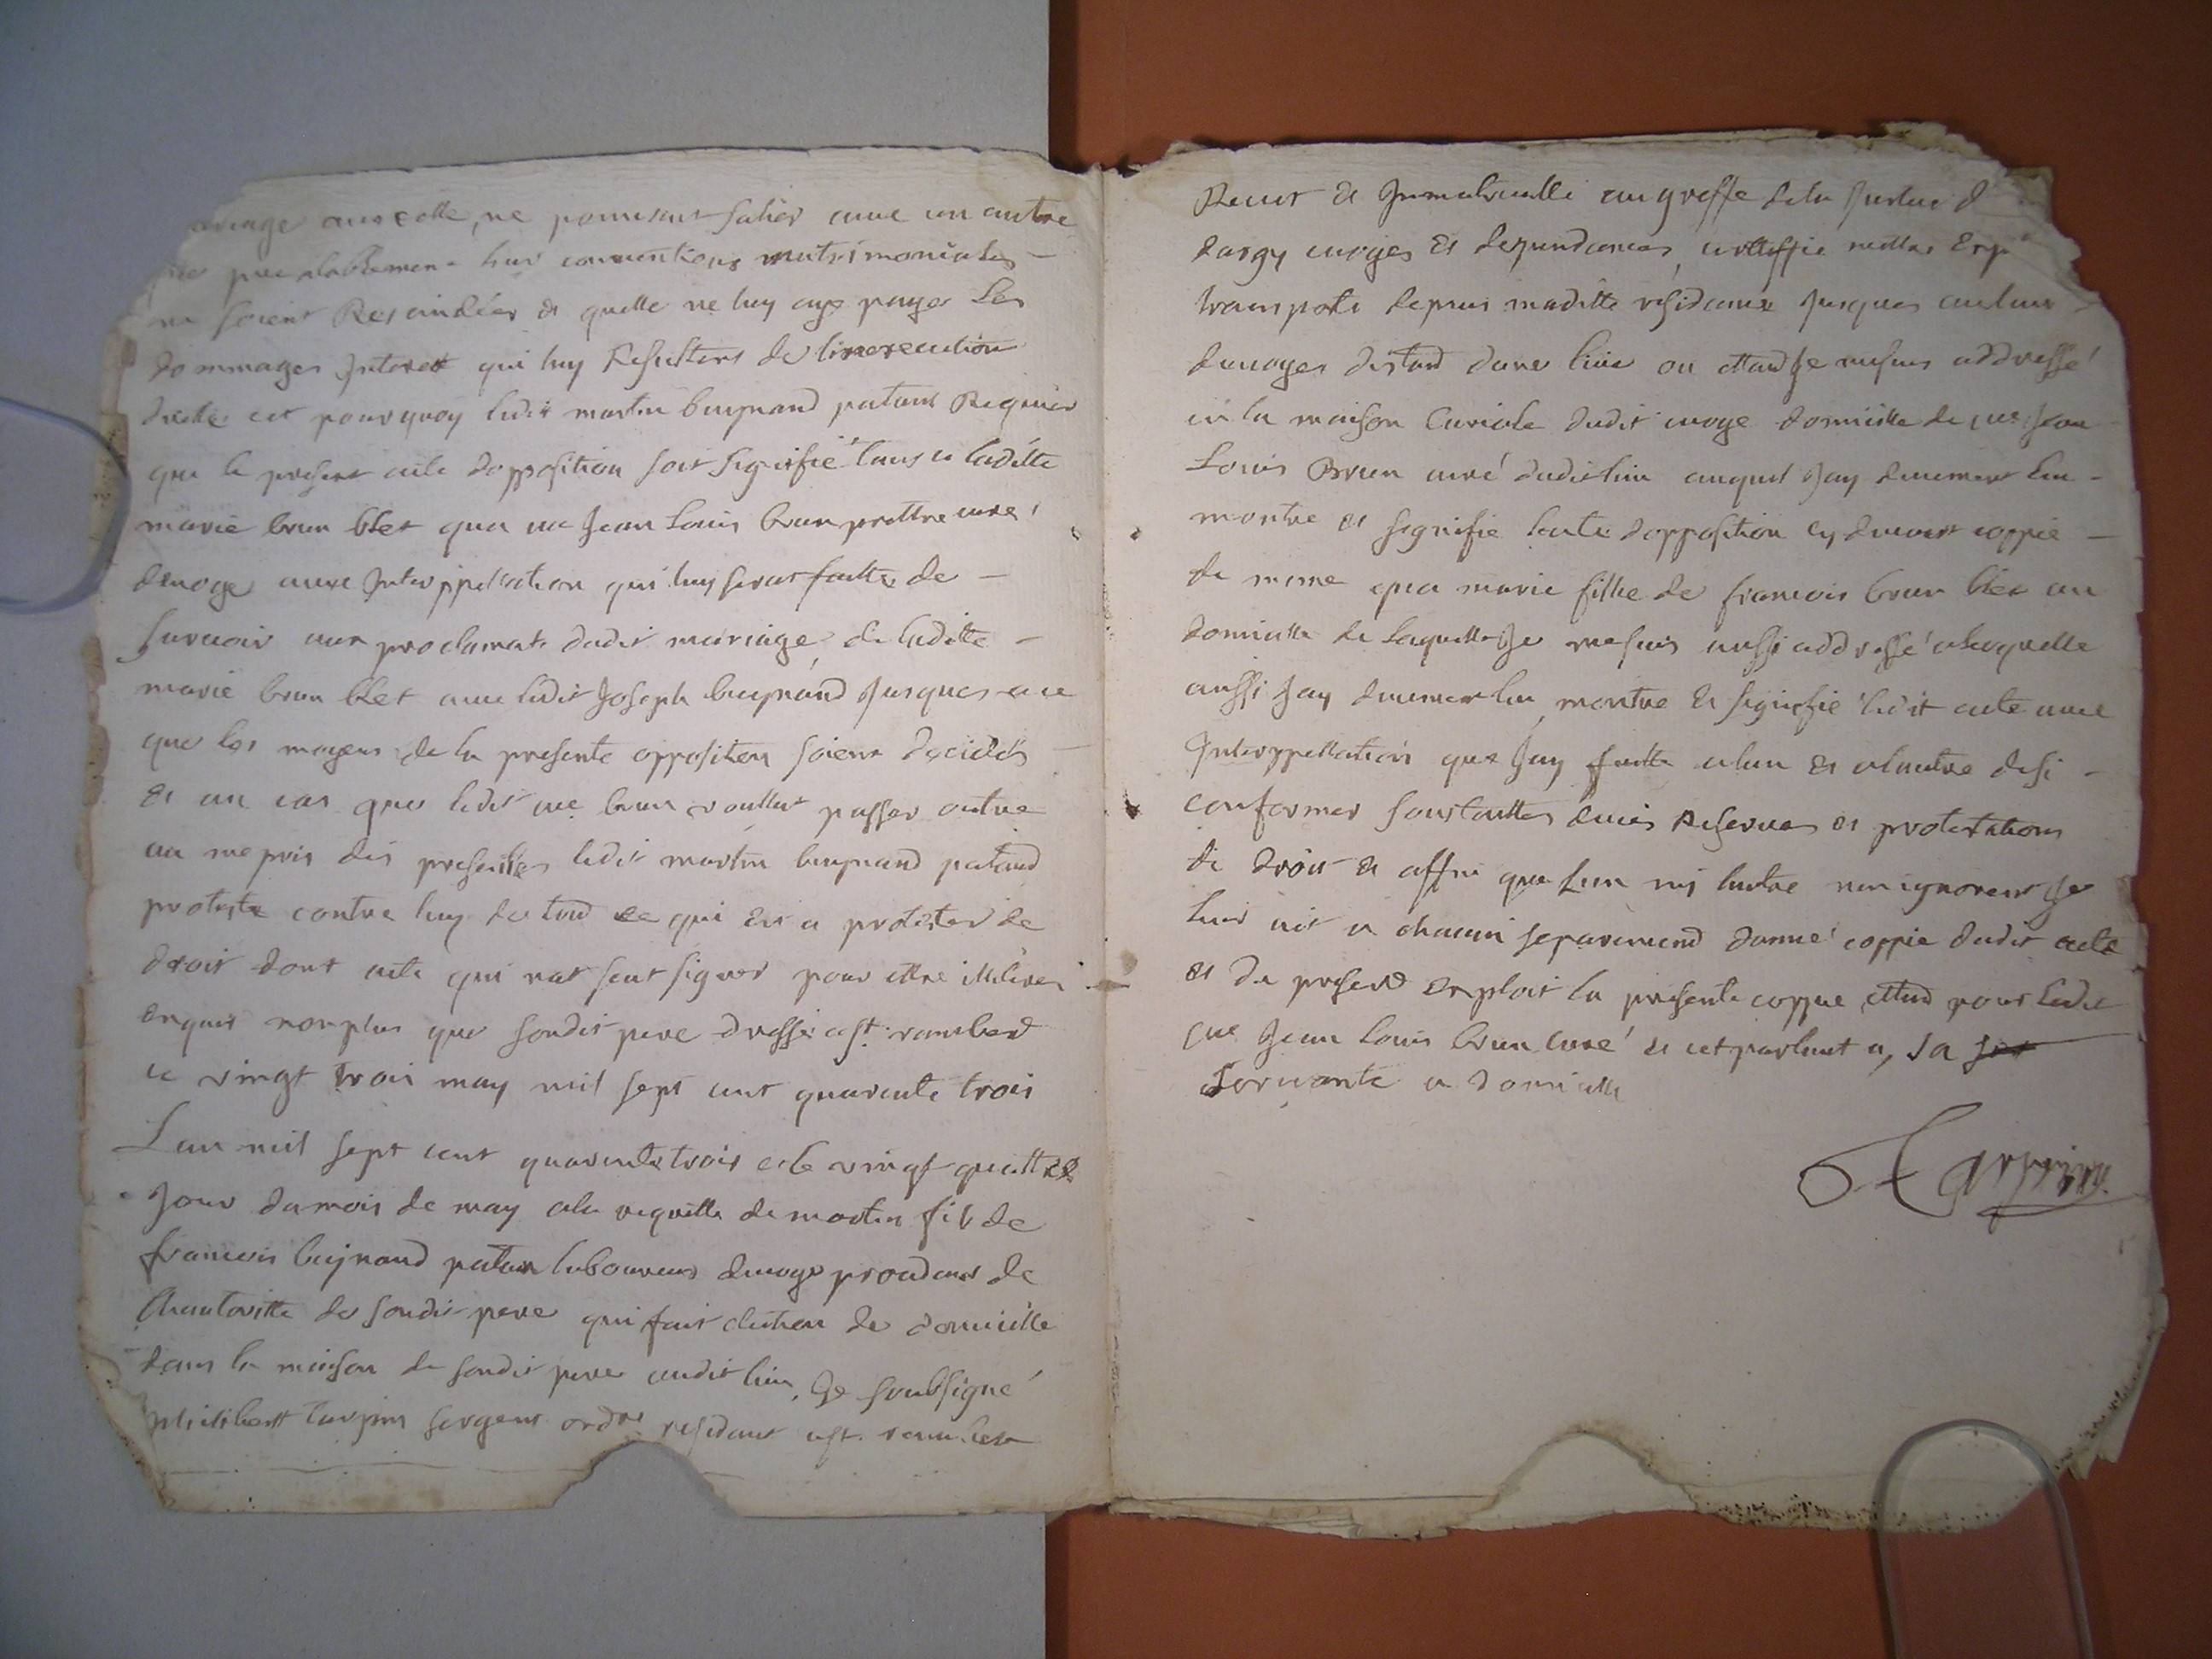 ariage avec elle, ne pouvant salier avec un autre
que prealablement leur conventions matrimoniales
ne soient Rescindées et quelle ne luy aye payer Les
dommages Interest qui luy Resultent de linexecution
dicelle cet pourquoy ledit martin buynand patant Requier
que le present acte dopposition soit signiffié tans a laditte
marie brun blet qua me Jean Louis brun prettre curé
denoge avec Interppellation qui luy serat faitte de
survoir aux proclamats dudit mariage de laditte
marie brun blet avec ledit Joseph buynand Jusques a ce
que les moyens de la presente opposition soient decidés
et au cas que ledit me brun voullut passer outre
au mepris des presentes ledit martin buynand patand
proteste contre luy de tout ce qui est a protester de
droit dont acte qui nat seut signer pour ettre illiteré
enquis non plus que sondit pere dressé a st. rambert
ce vingt trois may mil sept cent quarente trois
Lan mil sept cent quarente trois et le vingt quattre
Jour du mois de may ala requette de martin fils de
francois buynand patan laboureur denoge procedant de
lhautoritte de sondit pere qui fait election de domicille
dans la maison de sondit pere audit lieu, Je soubsigné
philibert tarpin sergent ordre residant a st. rambert
Recut et Jmmatricullé au greffe de la Justice d
dargy evoges et dependances, certiffie mettre Exp
transporté depuis maditte residence Jusques au lieu
denoges distand dune lieue ou ettand Je me suis addressé
en la maison Curiale dudit evoge domicille de me Jean
Louis Brun curé dudit lieu auquel Jay duement leu
montré et signifié lacte dopposition cy devant coppie
de meme qua marie fille de francois brun blet au
domicille de Laquelle Je me suis aussi addressé a laquelle
aussi Jay duement leu, montré et signifié ledit acte avec
Interppellation que Jay faitte alun et alautre de si
conformer sous touttes dues Reserves et protestations
de droit et affin que lun ny lautre nen ignorent Je
leur ait a chacun separement donné coppie dudit acte
et du present Exploit la presente coppie ettand pour ledit
me Jean Louis brun curé et cet parlant a, sa ser
Servante a domicille
Tarpin